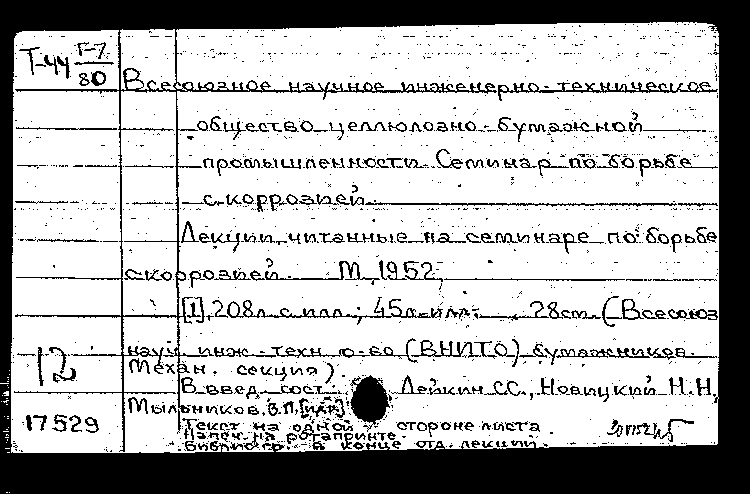 Т-44 Г-7
80
Всесоюзное научное инженерно-техническое
общество целлюлозно-бумажной
промышленности. Семинар по борьбе
с коррозией.
Лекции, читанные на семинаре по борьбе
с коррозией. М, 1952,
[1], 208л. с илл.; 45л. илл. 28см. (Всесоюз
науч. инж.-техн. о-во (ВНИТО) бумажников.
Механ. секция).
12
В введ. сост. Лейкин С.С., Новицкий Н.Н,
Мыльников, В.П, [и др]
17529
Текст на одной стороне листа.
Напеч. на ротапринте.
Библиогр. в конце отд. лекций.